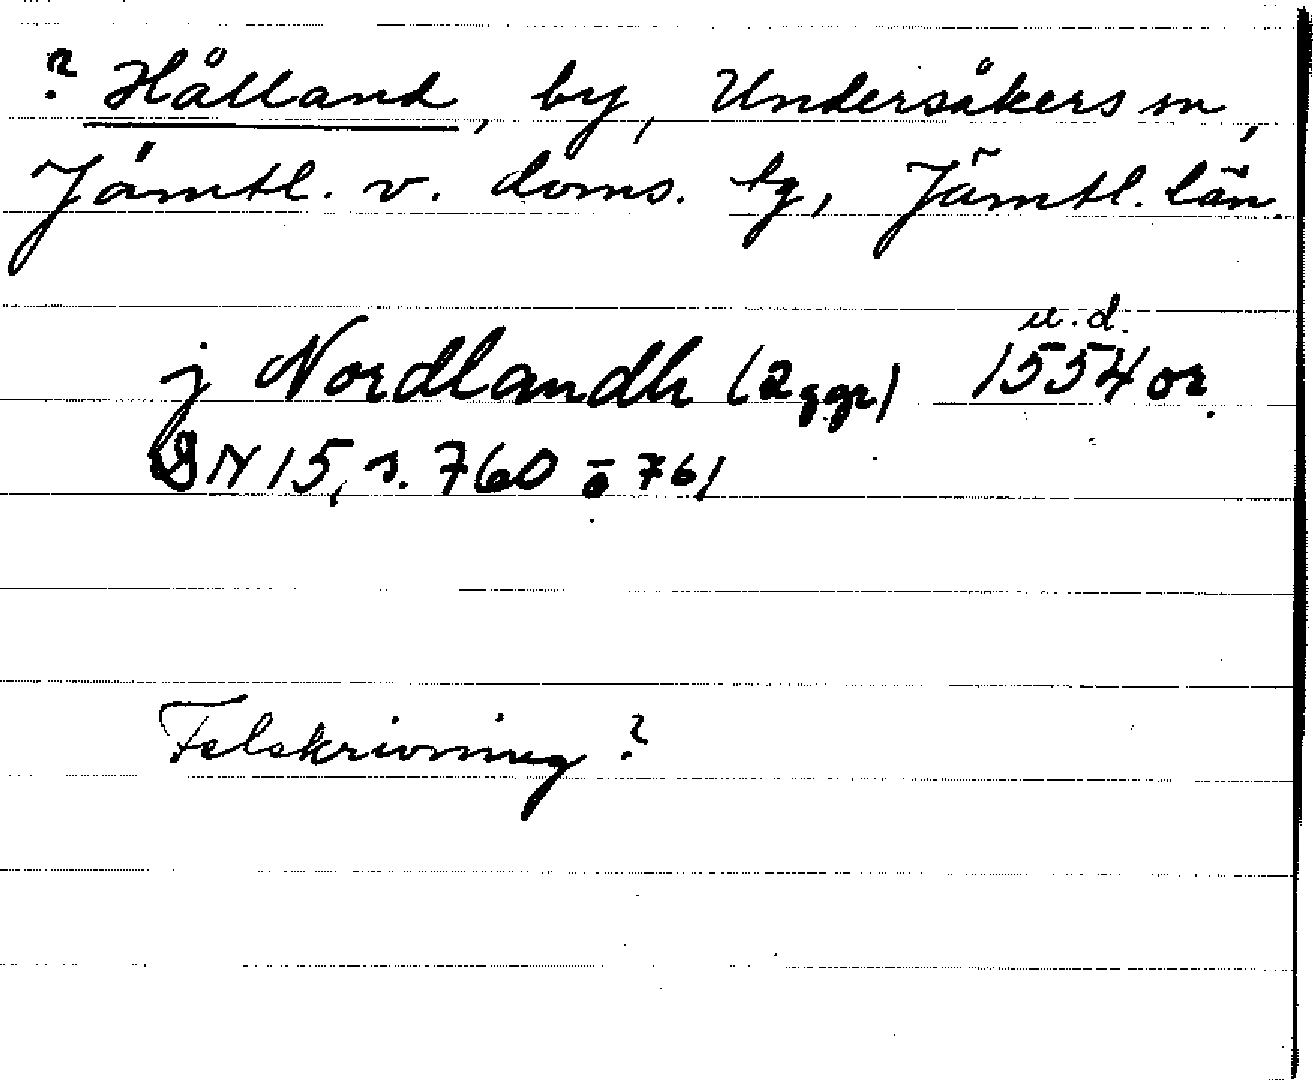 ? Hålland, by, Undersåkers sn,
Jämtl. v. doms. tg, Jämtl. län.
u. d.
j Nordlandh (2 ggr) 1554 or.
DN 15, s. 760 o 761
Felskrivning?